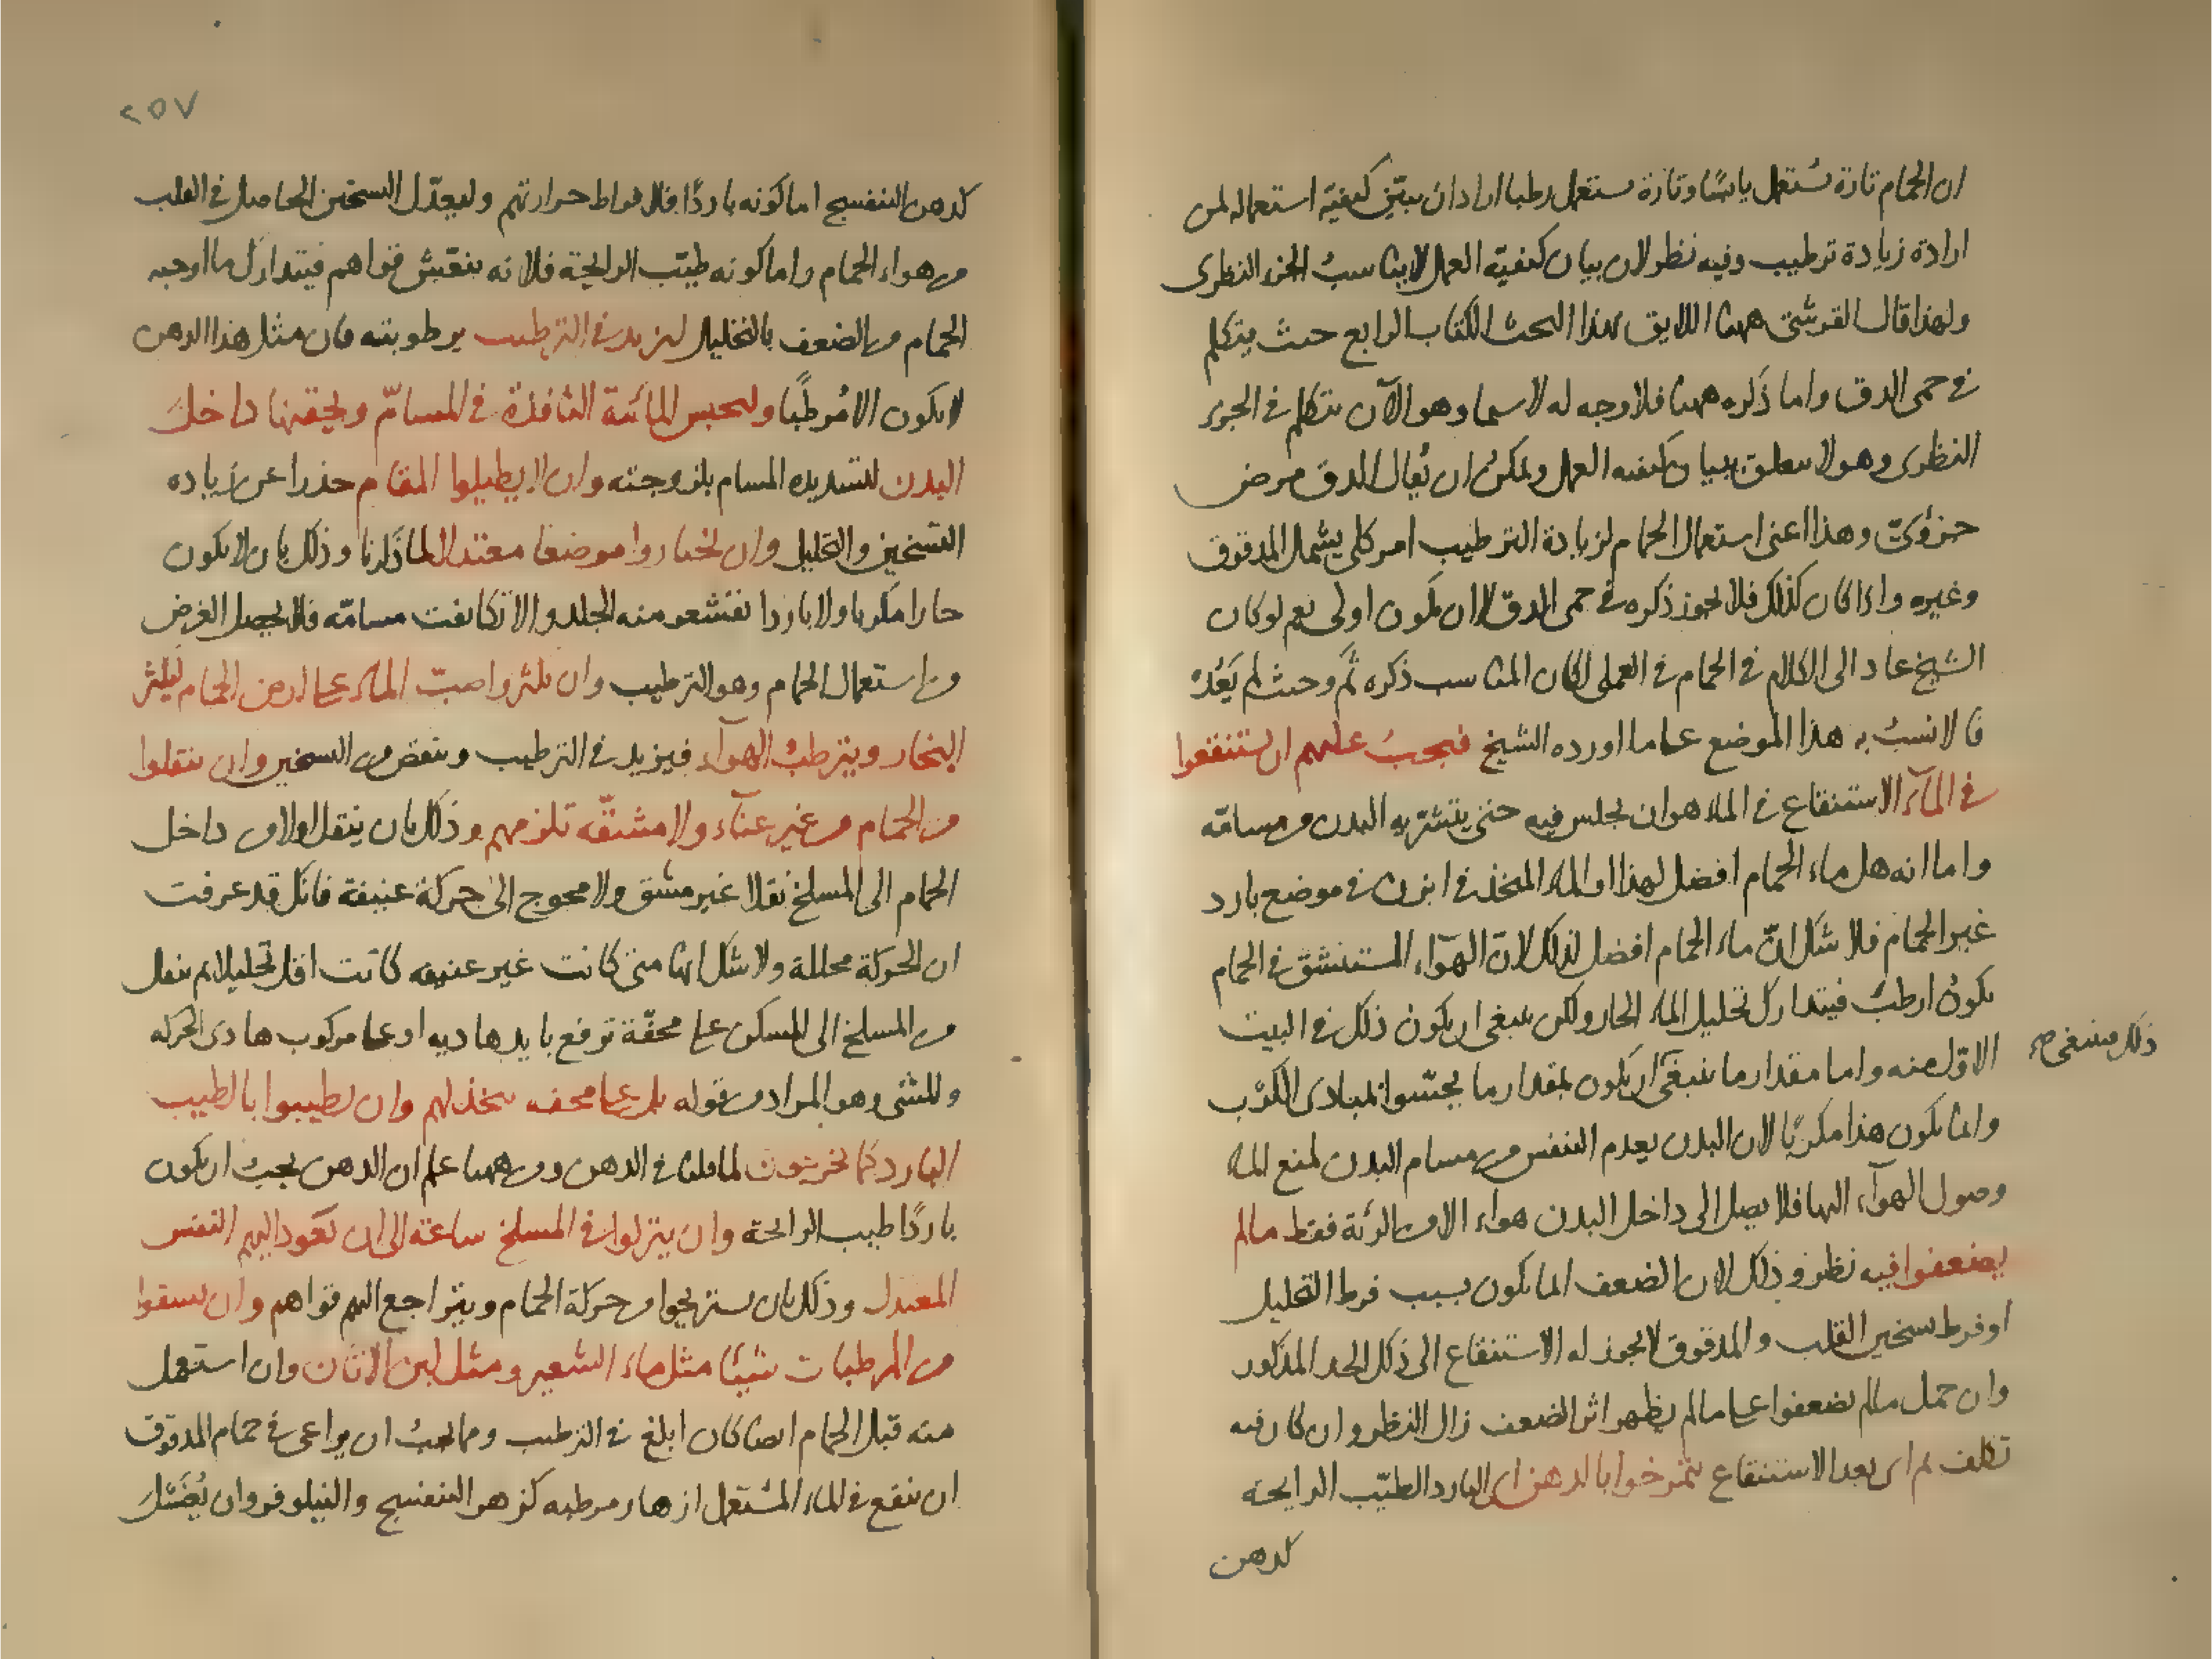 ان الحمام تارة يُستعمل يابسًا وتارة يستعمل رطبا اراد ان يبيّن كيفيّة استعماله لمن
اراده زيادة ترطيب وفيه نظر لان بيان كيفيّة العمل لا يناسبُ الجزء النظرى
ولهذا قال القرشىّ ههنا اللايق بهذا البحث الكتاب الرابع حيث يتكلم
فى حمى الدق واما ذَكره ههنا فلا وجه له لا سيما وهو الآن يتكلم فى الجزء
النظرى وهو لا يتعلق ببيان كيفيه العمل ويمكنُ ان يُقال الدق مرض
جزؤىّ وهذا اعنى استعمال الحمام لزيادة الترطيب امر كلى يشمل المدقوق
وغيره واذا كان كذلك فلا يجوز ذكره فى حمى الدق الا ان يكون اولى نعم لو كان
الشيخ عاد الى الكلام فى الحمام فى العملى لكان المناسب ذكره ثَم وحيث لم يَعُدْ
فالانسبُ به هذا الموضع على ما اورده الشيخ فيجبُ عليهم ان يستنقعوا
فى المآء الاستنقاع فى الماء هو ان يجلس فيه حتى يتشرّبه البدن من مسامّه
واما انه هل ماء الحمام افضل لهذا او الماء المتخذ فى ابزن فى موضع بارد
غير الحمام فلا شك انّ ماء الحمام افضل لذلك لانّ الهوآء المستنشق فى الحمام
يكونُ ارطبُ فيتدارك تحليل الماء الحار ولكن ينبغى ان يكون ذلك فى البيت
الاوّل منه واما مقدار ما ينبغى ان يكون بمقدار ما يحسّوا بمبادى الكرب
ذلك فينبغى صح
وانما يكون هذا مكربًا لان البدن يعدم التنفس من مسام البدن لمنع الماء
وصول الهوآء اليها فلا يصل الى داخل البدن هواء الا من الرئة فقط مالم
يضعفوا فيه نظر وذلك لان الضعف انما يكون بسبب فرط التحليل
او فرط تسخين القلب والمدقوق لا يجوز له الاستنقاع الى ذلك الحد المذكور
وان حمل مالم يضعفوا على مالم يظهر اثر الضعف زال النظر وان كان فيه
تكلف ثم اى بعد الاستنقاع يتمرخوا بالدهن اى البارد الطيّب الرايحة
كدهن
٢٥٧
كدهن البنفسج اما كونه باردًا فلافراط حرارتهم وليعدّل التسخين الحاصل فى القلب
من هواء الحمام واما كونه طيّب الرايحة فلانه ينعّش قواهم فيتدارك ما اوجبه
الحمام من الضعف بالتحليل ليزيد فى الترطيب برطوبته فان مثل هذا الدهن
لا يكون الا مُرطّبًا وليحبس المائية النافذة فى المسامّ ويحقنها داخل
البدن لتسديده المسام بلزوجته وان لا يطيلوا المقام حذرا عن زياده
التسخين والتحليل وان يختاروا موضعا معتدلا لما ذكرنا وذلك بان لا يكون
حارا مكربا ولا باردا تقشعر منه الجلد والا تكاثفت مسامّه فلا يحصل الغرض
من استعمال الحمام وهو الترطيب وان يكثروا صبّ الماء على ارض الحمام ليكثر
البخار ويترطبُ الهوآء فيزيد فى الترطيب وينقص من التسخين وان ينقلوا
من الحمام من غير عنآء ولا مشقّه تلزمهم وذلك بان ينقل اولا من داخل
الحمام الى المسلخ نقلا غير مشق ولا محوج الى حركة عنيفة فانك قد عرفت
ان الحركة محللة ولا شك انها متى كانت غير عنيفه كانت اقل تحليلا ثم ينقل
من المسلخ الى المسكن على محفّة ترفع بايد هاديه او على مركوب هادى الحركه
وللمشى وهو المراد من قوله بل على محفه يتخذ لهم وان يطيبوا بالطيب
البارد كما يخرجون لما قلنا فى الدهن ومن ههنا علم ان الدهن يجبُ ان يكون
باردًا طيب الرائحة وان يتزلوا فى المسلخ ساعة الى ان يعود اليهم النفس
المعتدل وذلك بان يستريحوا من حركة الحمام ويتراجع اليهم قواهم وان يسقوا
من المرطبات شيئًا مثل ماء الشعير ومثل لبن الاتان وان استعمل
منه قبل الحمام ايضا كان ابلغ فى الترطيب ومما يجبُ ان يراعى فى حمام المدقوق
ان ينقع فى الماء المستعمل ازهار مرطبه كزهر البنفسج والنيلوفر وان يُغتسل